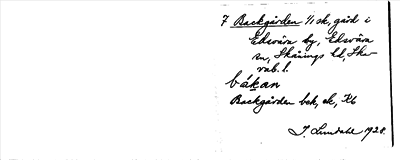 7 Backgården 1/1 sk, gård i
Edsvära by, Edsvära
sn, Skånings hd, Ska-
rab. l.
bákan
Backgården bok, ek, Kb
J. Lundahl 1928.